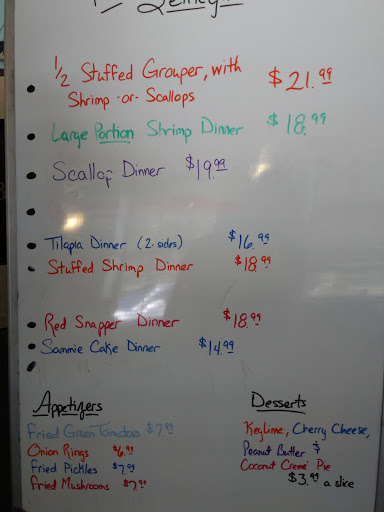 1/2 Stuffed Grouper, with $21.99
Shrimp -or- Scallops
Large Portion Shrimp Dinner $18.99
Scallop Dinner $19.99
Tilapia Dinner (2 sides) $16.99
Stuffed Shrimp Dinner $18.99
Red Snapper Dinner $18.99
Sammie Cake Dinner $14.99
Appetizers
Fried Green Tomatoes $7.99
Onion Rings $6.99
Fried Pickles $7.99
Fried Mushrooms $7.99
Desserts
Keylime, Cherry Cheese,
Peanut Butler &
Coconut Creme Pie
$3.99 a slice